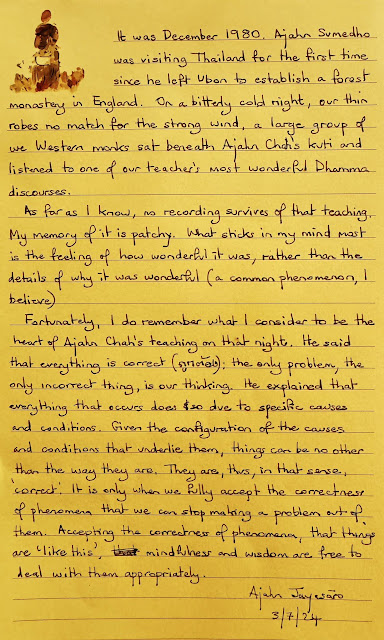 It was December 1980. Ajahn Sumedho
was visiting Thailand for the first time
since he left Ubon to establish a forest
monastery in England. On a bitterly cold night, our thin
robes no match for the strong wind, a large group of
we Western monks sat beneath Ajahn Chah's kuti and
listened to one of our teacher's most wonderful Dhamma
discourses.
As far as I know, no recording survives of that teaching.
My memory of it is patchy. What sticks in my mind most
is the feeling of how wonderful it was, rather than the
details of why it was wonderful (a common phenomenon, I
believe)
Fortunately, I do remember what I consider to be the
heart of Ajahn Chah's teaching on that night. He said
that everything is correct (ถูกต้อง); the only problem, the
only incorrect thing, is our thinking. He explained that
everything that occurs does so due to specific causes
and conditions. Given the configuration of the causes
and conditions that underlie them, things can be no other
than the way they are. They are, thus, in that sense,
'correct'. It is only when we fully accept the correctness
of phenomena that we can stop making a problem out of
them. Accepting the correctness of phenomena, that things
are 'like this', mindfulness and wisdom are free to
deal with them appropriately.
Ajahn Jayasāro
3/7/24